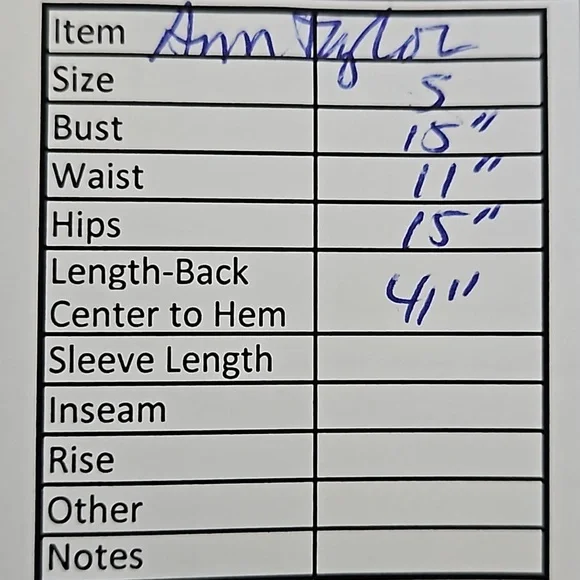 Item Ann Taylor
Size S
Bust 15"
Waist 11"
Hips 15"
Length-Back
Center to Hem 41"
Sleeve Length
Inseam
Rise
Other
Notes